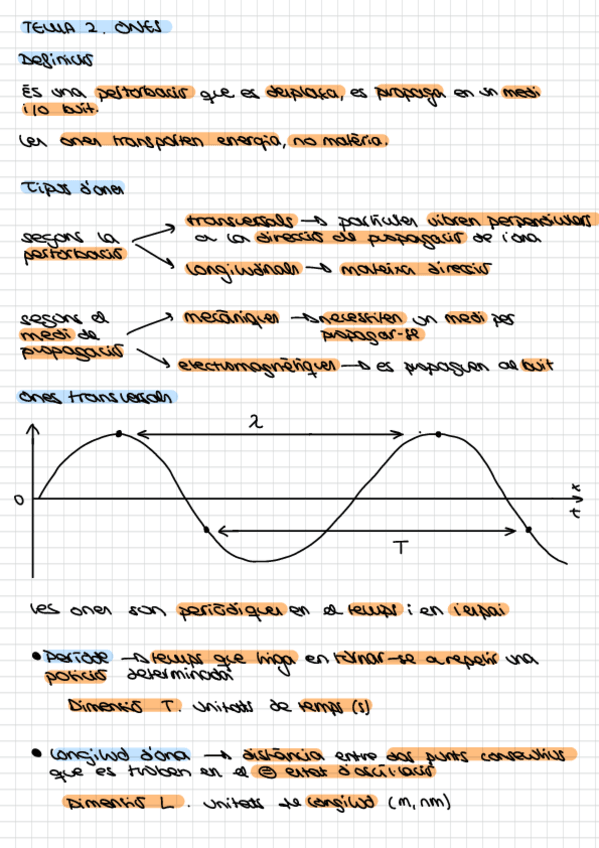 TEMA 2. ONES
Definició
És una pertorbació que es desplaça, es propaga en un medi
i/o buit.
Les ones transporten energia, no matèria.
Tipus d'ones
segons la
pertorbació
transversals → partícules vibren perpendiculars
a la direcció de propagació de l'ona
longitudinals → mateixa direcció
segons el
medi de
propagació
mecàniques → necessiten un medi per
propagar-se
electromagnètiques → es propaguen al buit
Ones transversals
λ
0
x
t
T
Les ones son periòdiques en el temps i en l'espai
• Període → temps que triga en tornar-se a repetir una
posició determinada
Dimensió T. Unitats de temps (s)
• Longitud d'ona → distància entre dos punts consecutius
que es troben en el = estat d'oscil·lació
Dimensió L. unitats de longitud (m, nm)